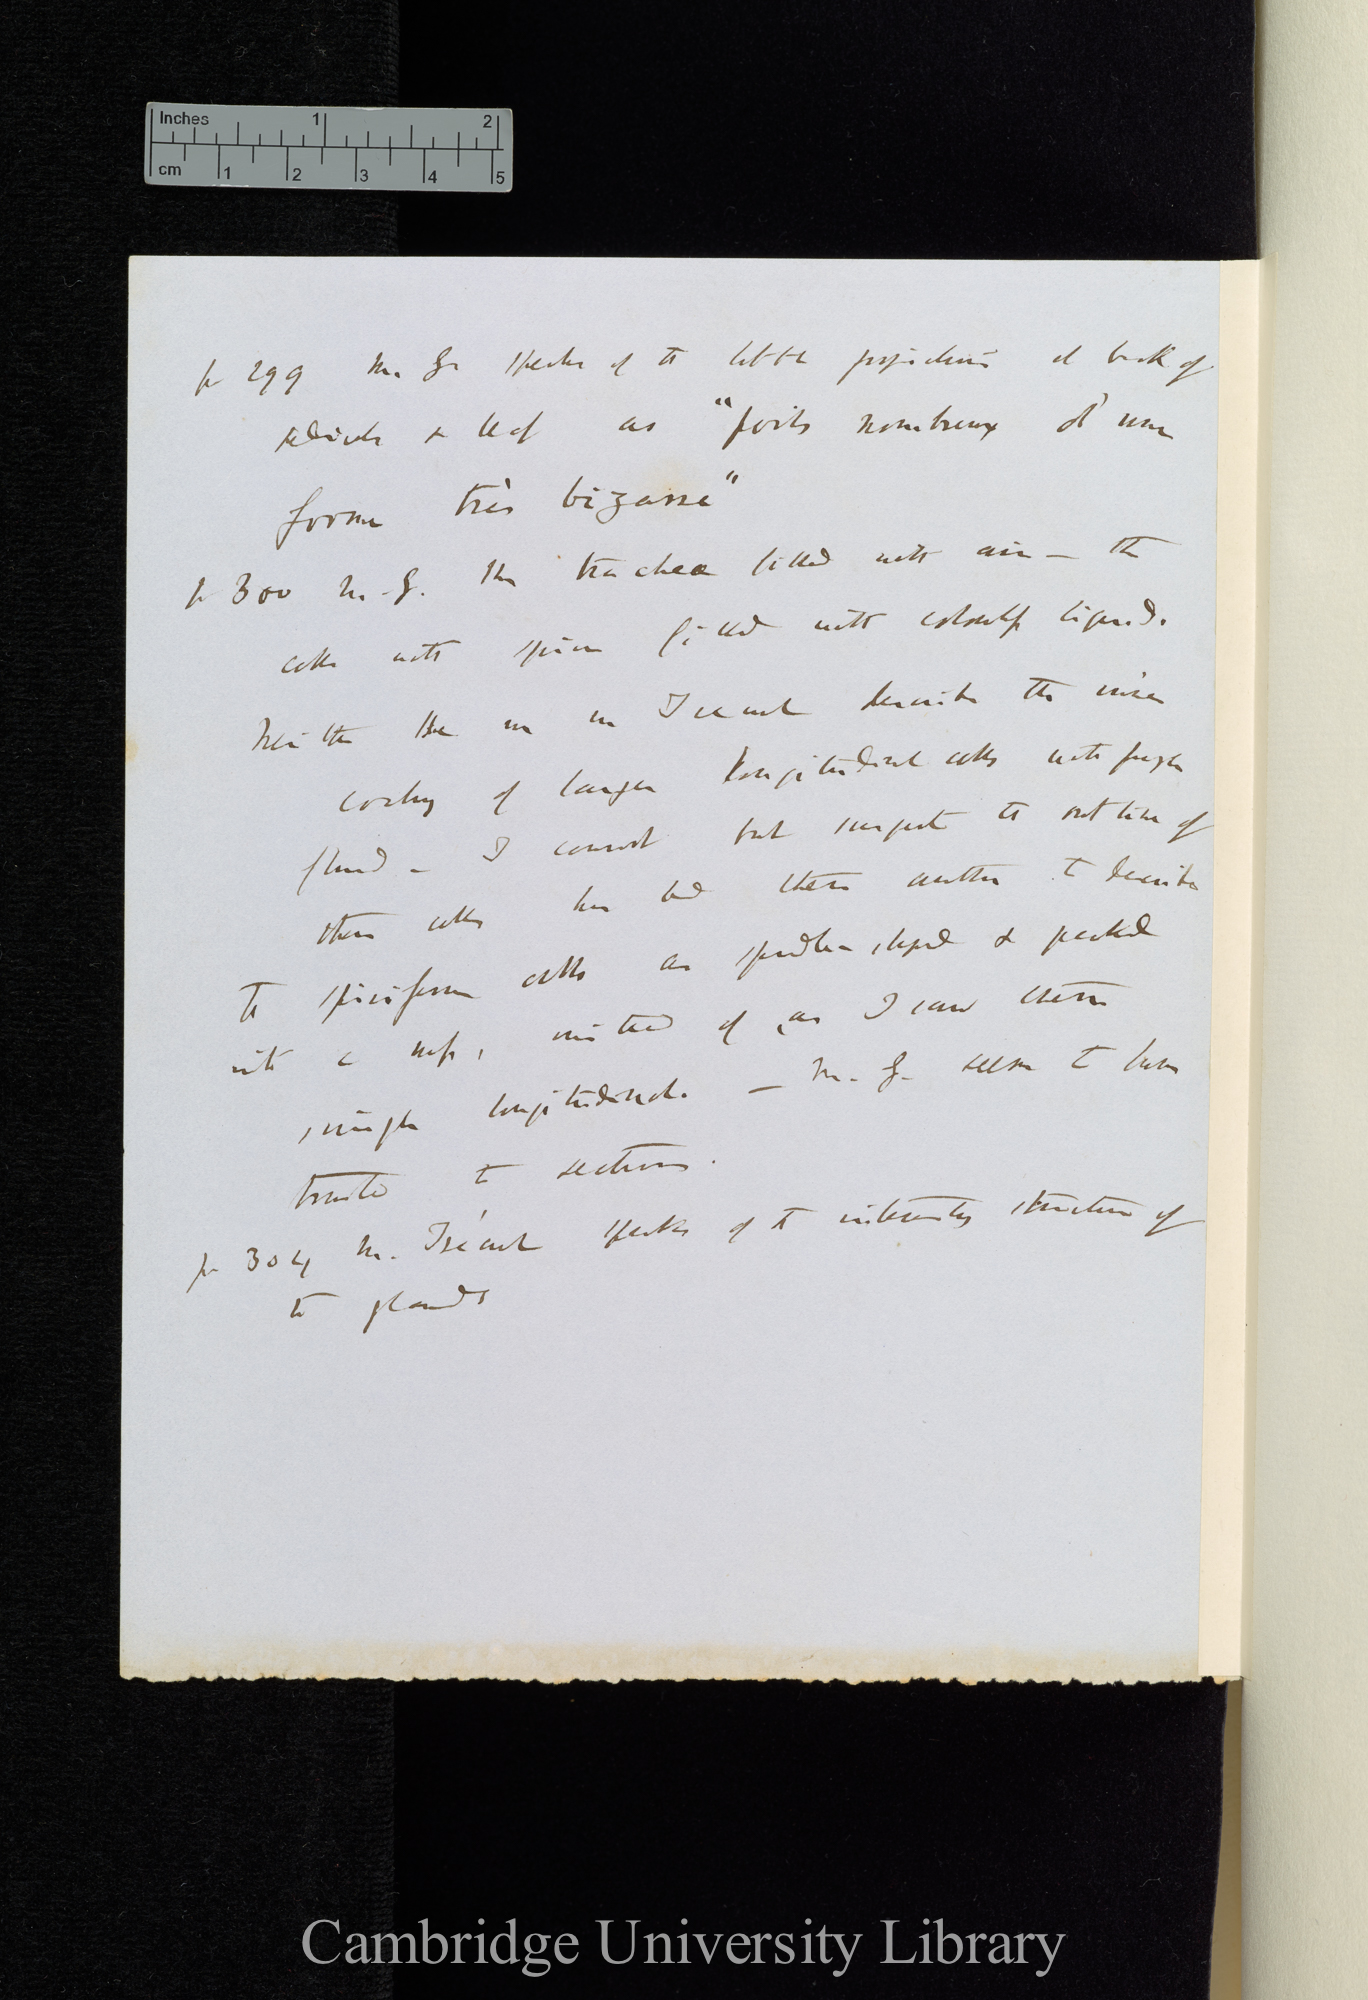 Inches 1 2
cm 1 2 3 4 5
p 299 M. Gr speaks of the little projections at back of
pedicels & leaf as "poils nombreux d'une
forme très bizarre"
p 300 M. G. the trachea filled with air — the
cells with spire filled with colourless liquid.
Neither the one or Trécul describe the inner
of larger longitudinal cells with purple
fluid — I cannot but suspect the outline of
these cells has led these authors to describe
the spiriform cells as spindle-shaped & packed
into a , instead of as I saw them
single longitudinal. — M. G. seems to have
trusted to sections.
p 304 M. Trécul speaks of the structure of
the glands
Cambridge University Library